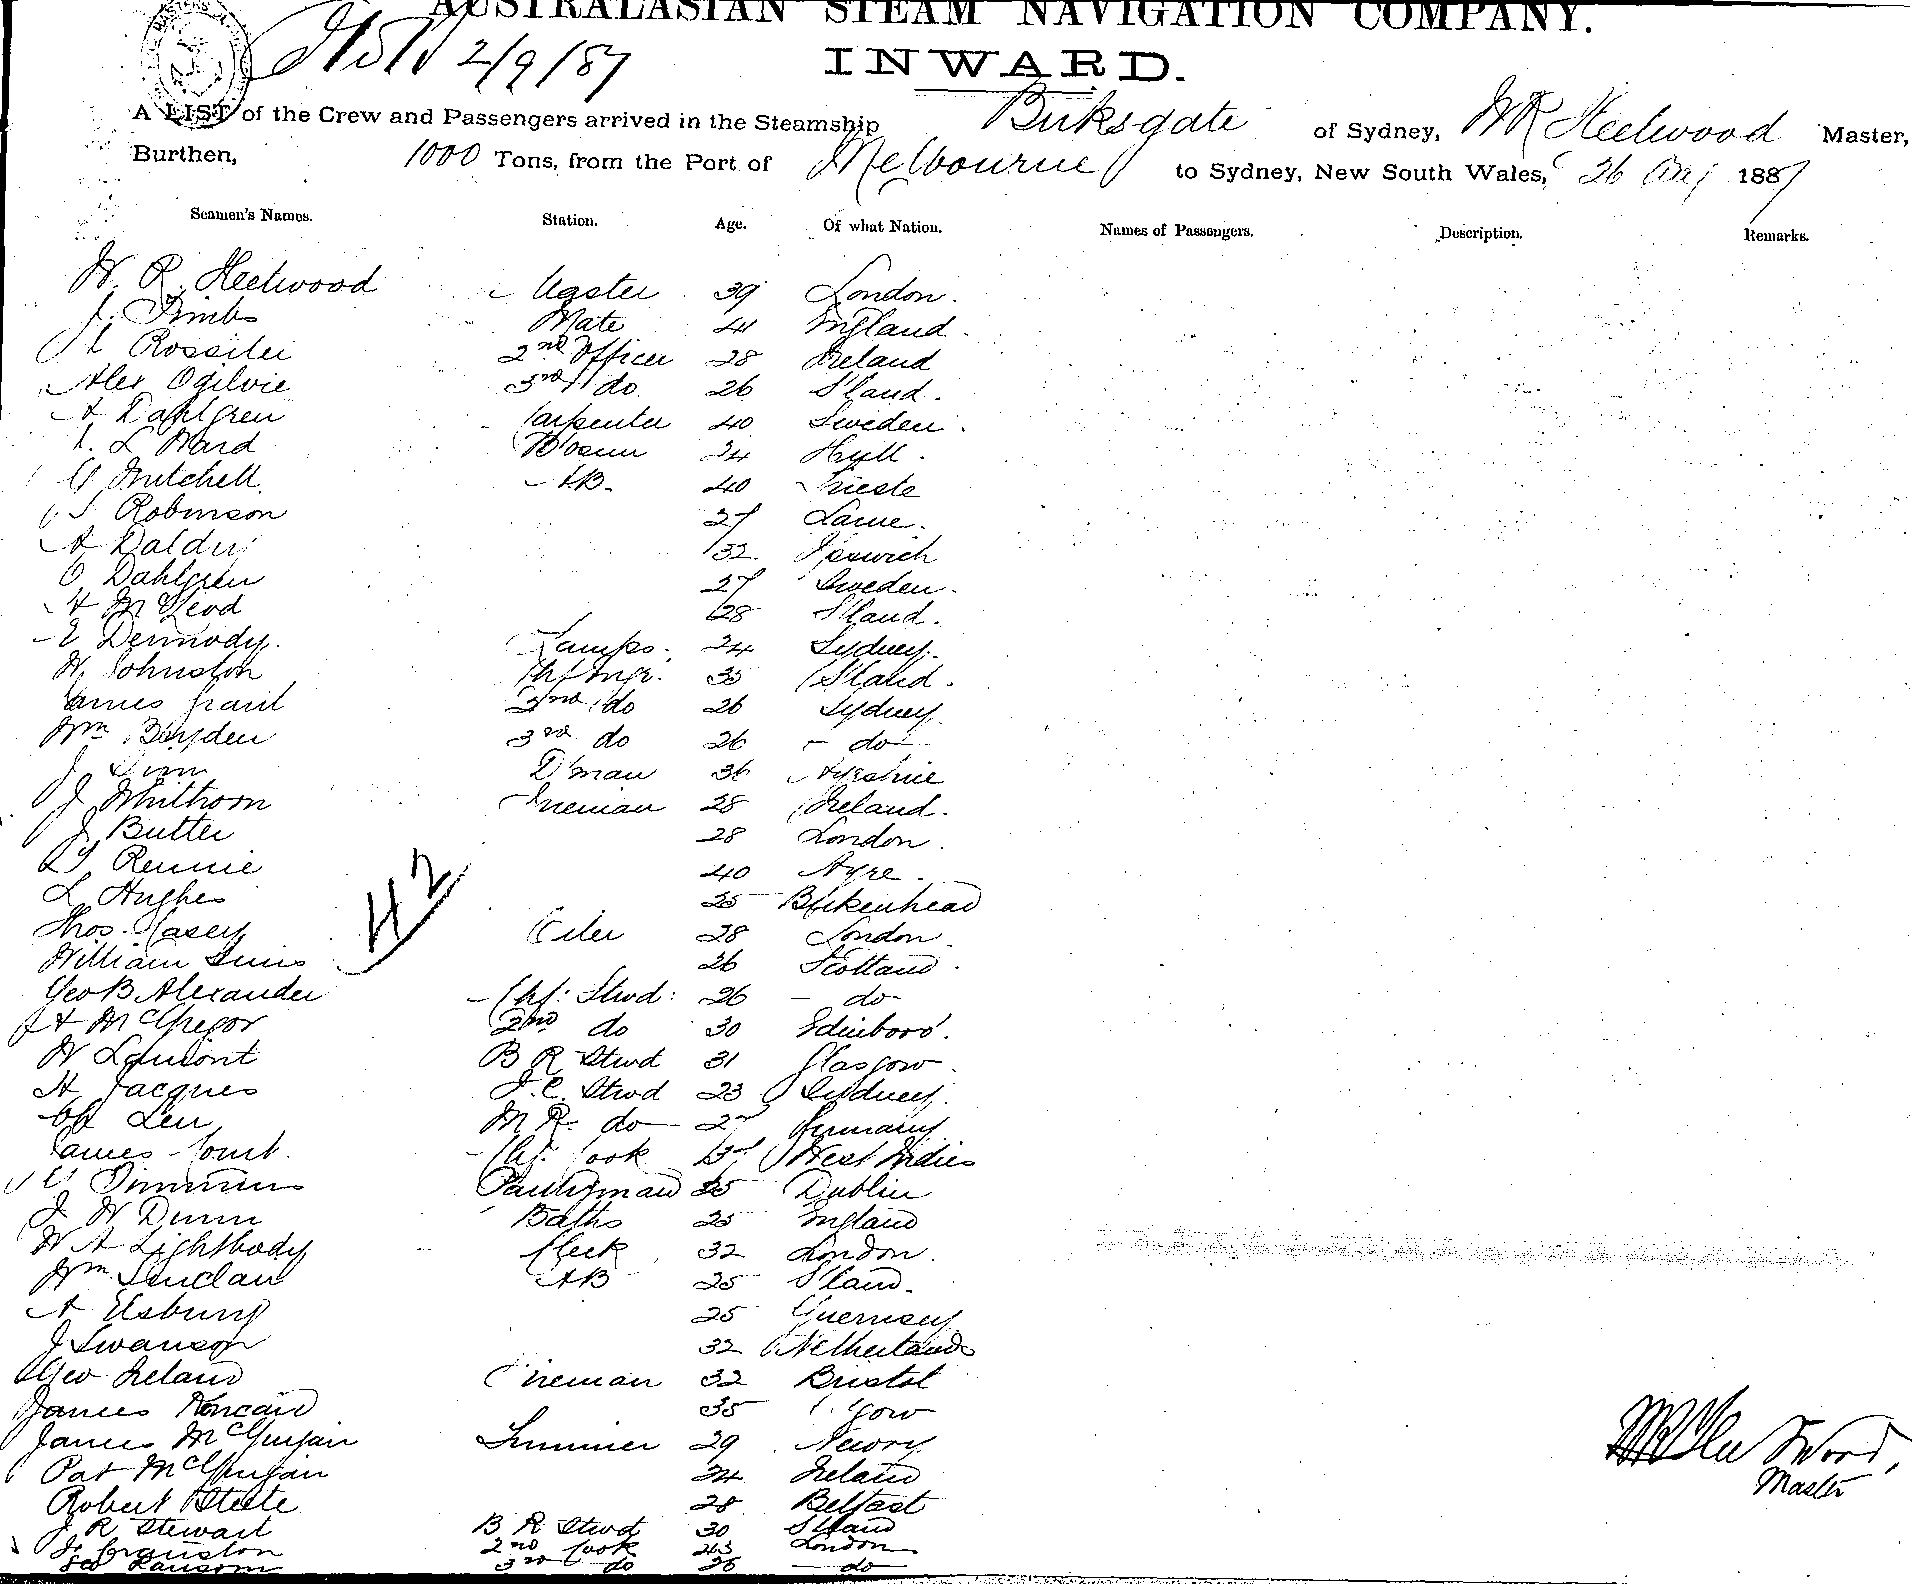 AUSTRALASIAN STEAM NAVIGATION COMPANY.
2/9/87
INWARD.
A LIST of the Crew and Passengers arrived in the Steamship Birksgate of Sydney, W R Heelwood Master,
Burthen, 1000 Tons, from the Port of Melbourne to Sydney, New South Wales, 26 Aug 1887
Seamen's Names. Station. Age. Of what Nation. Names of Passengers. Description. Remarks.
W. R. Heelwood Master 39 London.
J. Timbs Mate 41 England.
Rossiter 2nd Officer 28 Ireland
Alex Ogilvie 3rd do 26 S'land.
A Dahlgren Carpenter 40 Sweden.
L Ward Bosun 24 Hull.
G Mitchell. AB. 40 Trieste
S Robinson 27 Larne.
A Daldry 32 Ipswich
O Dahlgren 27 Sweden.
A McLeod 28 S'land.
E Dermody. Lamps. 24 Sydney.
W Johnston Chf Engr. 35 S'land.
James Grant 2nd do 26 Sydney.
Wm Boyden 3rd do 26 - do -
J D'man 36 Ayrshire
J Whithorn Fireman 28 Ireland.
J Butler 28 London.
Rennie 40 Ayre.
L Hughes 25 Birkenhead
Thos. Casey Oiler 28 London.
William Sims 26 Scotland.
42
Geo B Alexander Chf: Stwd: 26 - do -
J A McGregor 2nd do 30 Edinboro'.
W Lamont B R Stwd 31 Glasgow.
A Jacques F.C. Stwd 23 Sydney.
Len M R. do Germany
James Court. Chf. Cook West Indies
Timmins Pantryman 25 Dublin
J W Dunn Baths 25 England
W A Lightbody Clerk 32 London.
Wm Sinclair AB 25 S'land.
A Elsbury 25 Guernsey
J Swanson 32 Netherlands
Geo Ireland Fireman 32 Bristol
James Kincaid 35 G'gow
James McGuigan Trimmer 29 Newry
Pat McGuigan 24 Ireland
Robert Steele 28 Belfast
J R Stewart B R Stwd 30 S'land
J Ferguston 2nd Cook 43 London
Geo Ransom 3rd do 26 - do -
Master